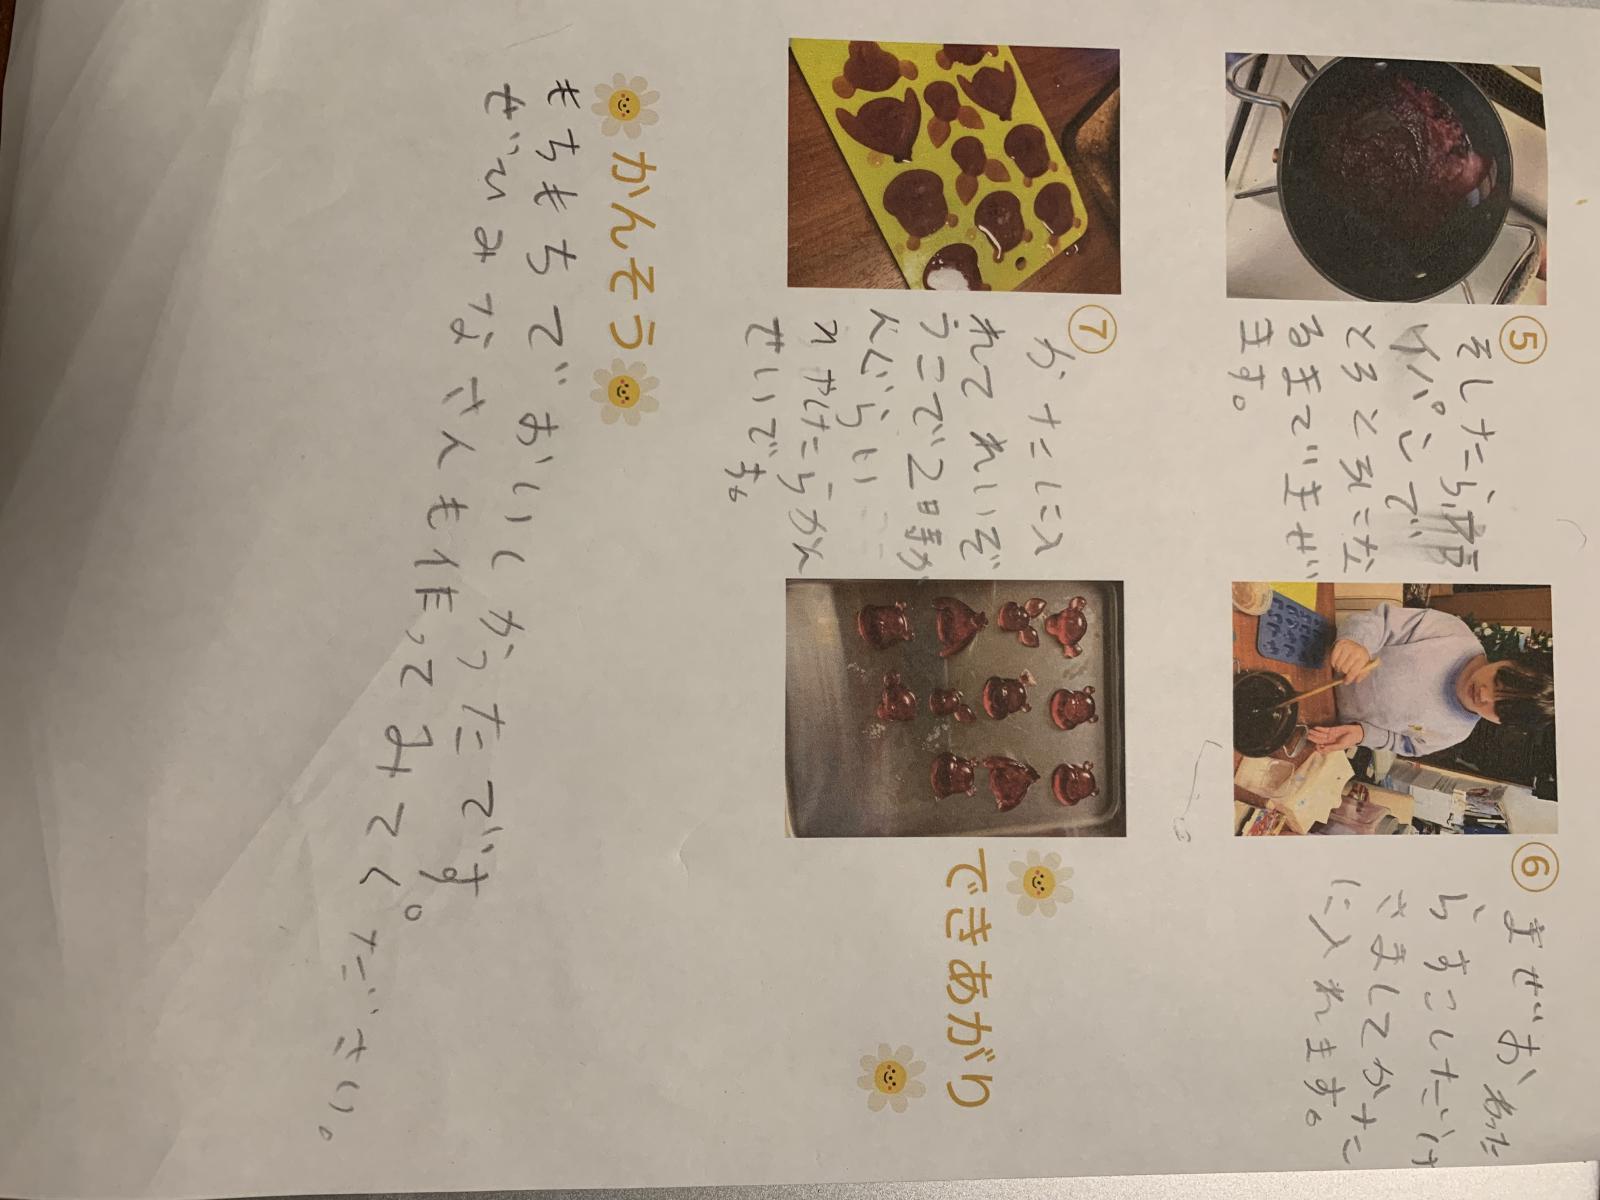 ⑤
そしたら、
パンで
とろとろにな
るまでまぜ
ます。
⑥
まぜおわった
らすこしだけ
さましてかた
に入れます。
⑦
かたに入
れてれいぞ
うこで2時か
んぐらい
たらかん
せいです。
できあがり
かんそう
もちもちでおいしかったです。
ぜひみなさんも作ってみてください。